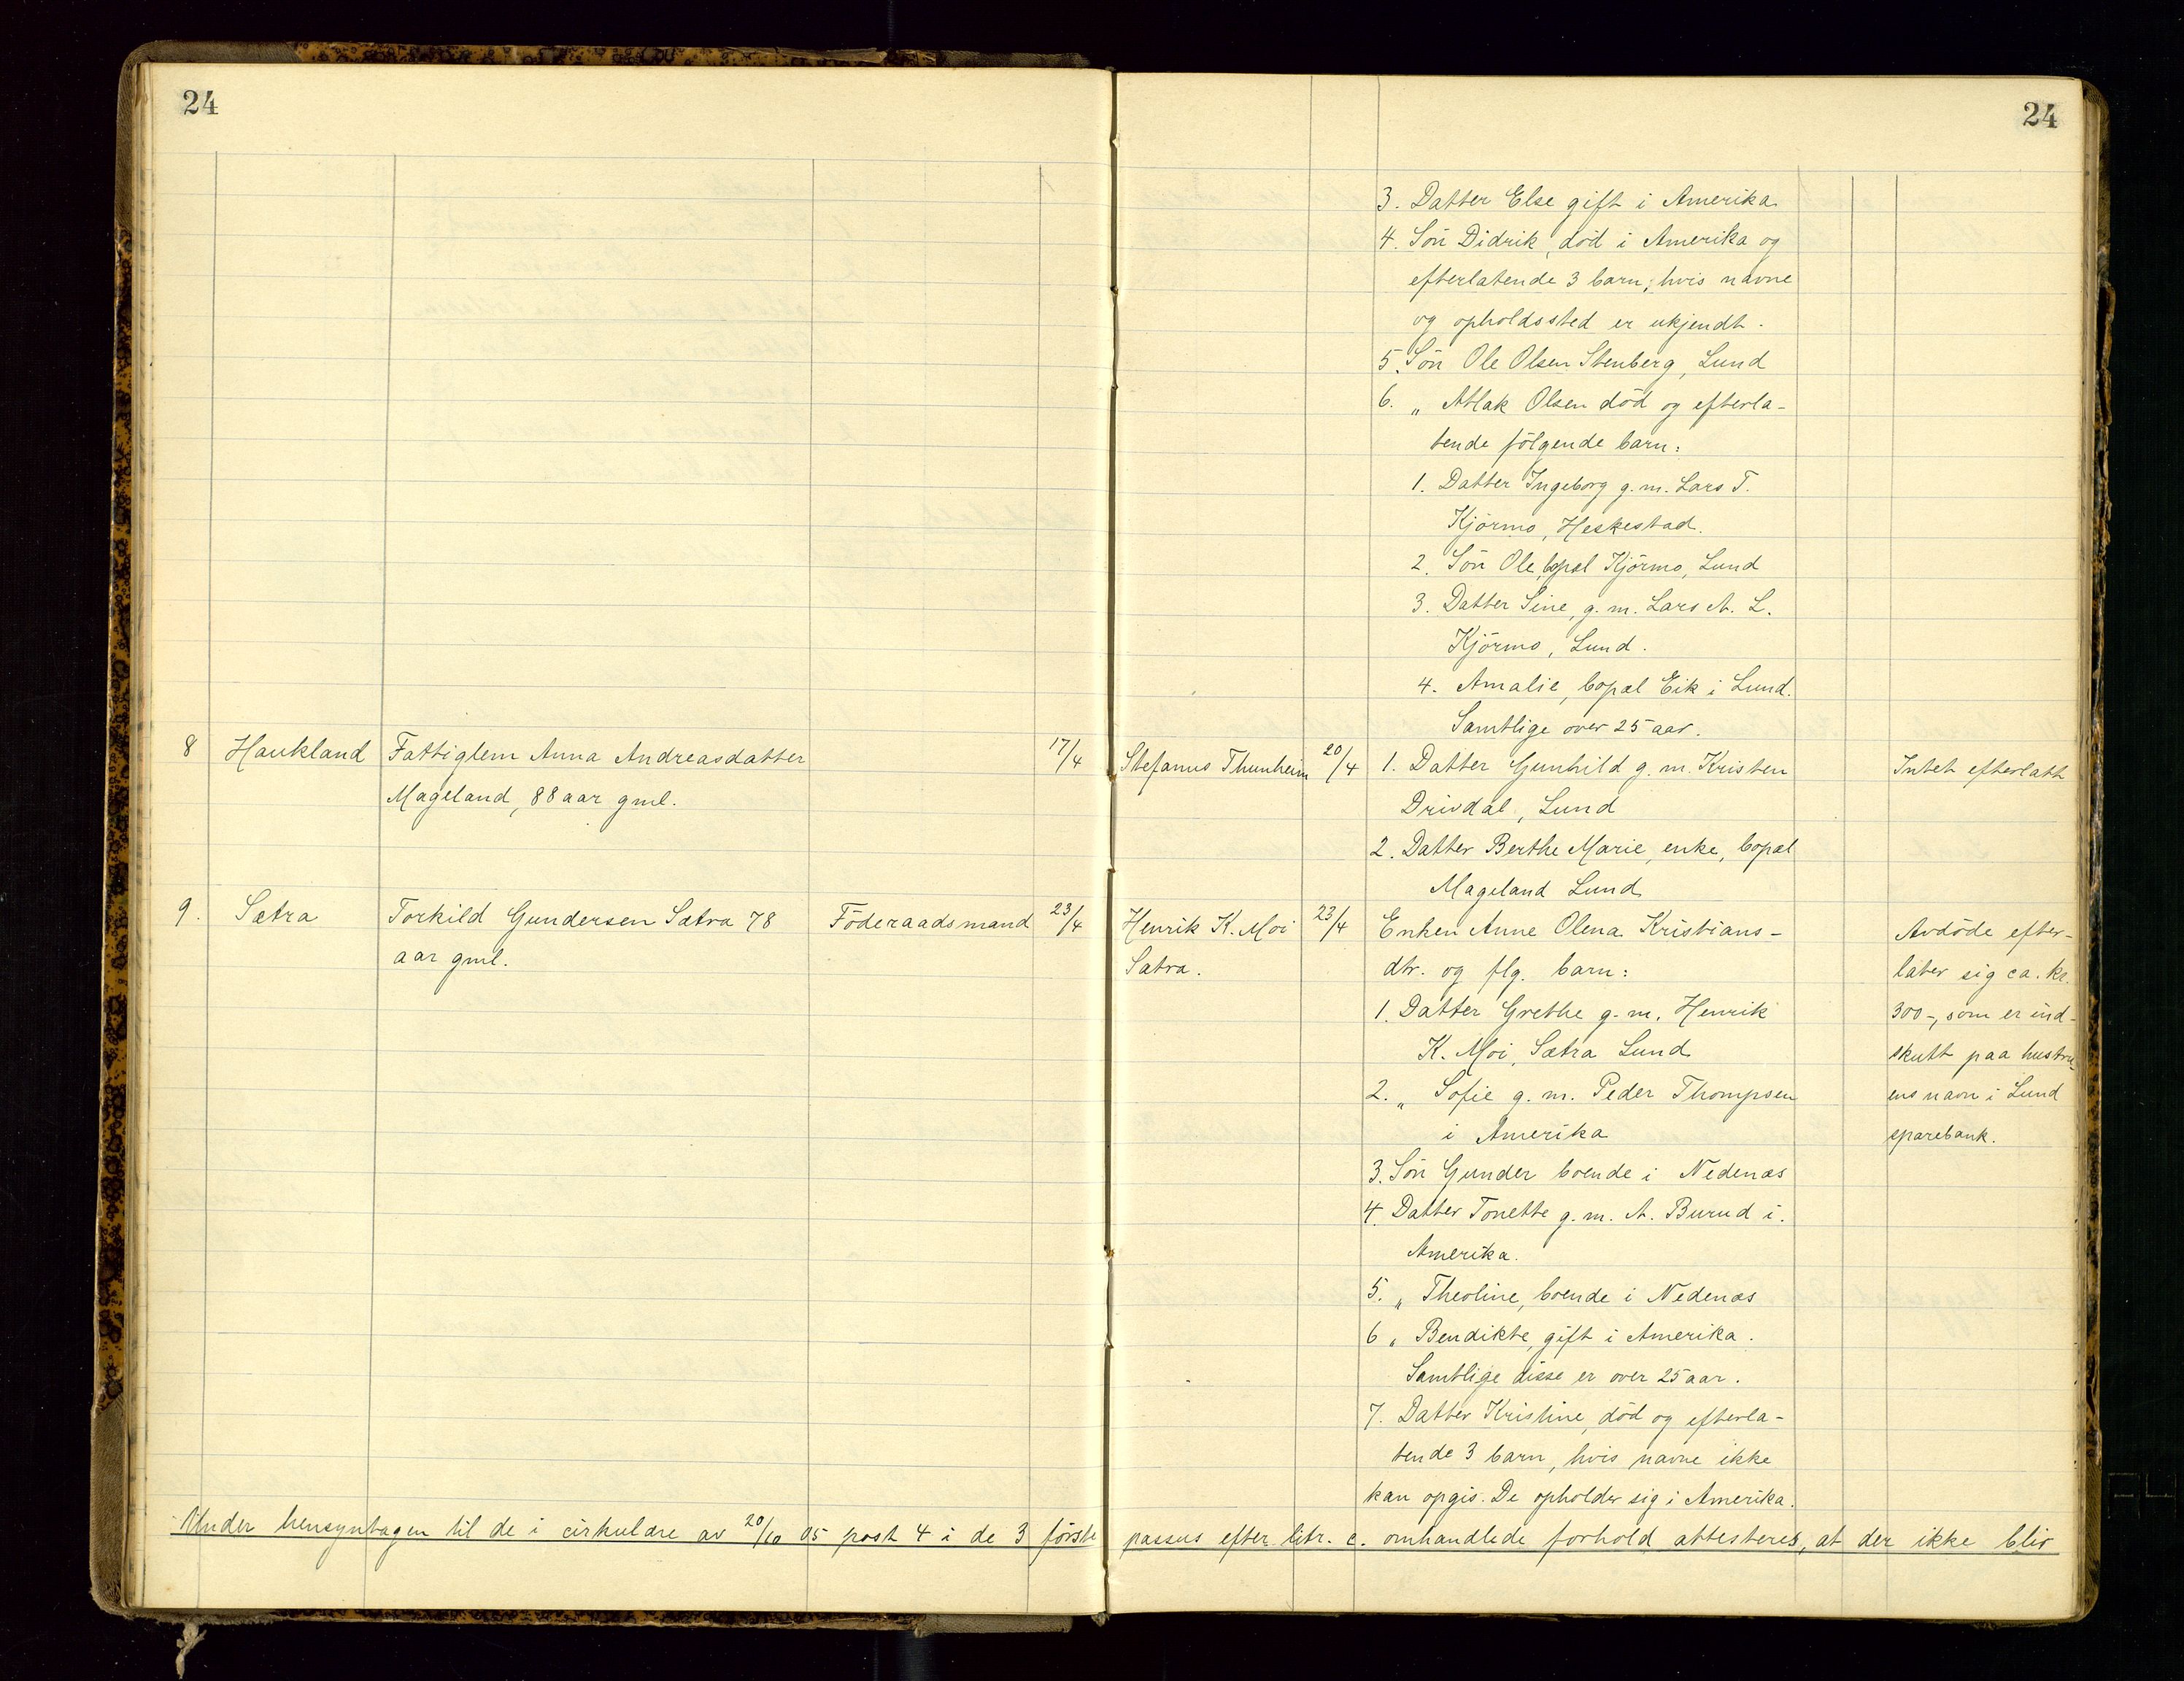 24
24
3. Datter Else gift i Amerika
4. Sön Didrik, död i Amerika og
efterlatende 3 barn, hvis navne
og opholdssted er ukjendt.
5. Sön Ole Olsen Stenberg, Lund
6. „ Atlak Olsen död og efterla-
tende fölgende barn:
1. Datter Ingeborg g.m. Lars T.
Kjörmo, Heskestad.
2. Sön Ole, bopæl Kjörmo, Lund
3. Datter Sine, g.m. Lars A. L.
Kjörmo, Lund.
4. Amalie, bopæl Eik i Lund.
Samtlige over 25 aar.
8 Haukland Fattiglem Anna Andreasdatter 17/4 Stefanus Thunheim 20/4 1. Datter Gunhild g.m. Kristen Intet efterlatt
Mageland, 88 aar gml. Drivdal, Lund
2. Datter Berthe Marie, enke, bopæl
Mageland Lund
9. Sætra Torkild Gundersen Sætra 78 Föderaadsmand 23/4 Henrik K. Moi 23/4 Enken Anne Olena Kristians- Avdöde efter-
aar gml. Sætra. dtr. og flg. barn: later sig ca. kr.
1. Datter Grethe g.m. Henrik 300-, som er ind-
K. Moi, Sætra Lund skutt paa hustru-
2. „ Sofie g.m. Peder Thompsen ens navn i Lund
i Amerika sparebank.
3. Sön Gunder boende i Nedenæs
4. Datter Tonette g.m. A. Burud i
Amerika.
5. „ Theoline, boende i Nedenæs
6 „ Bendikte, gift i Amerika.
Samtlige disse er over 25 aar.
7. Datter Kristine, död og efterla-
tende 3 barn, hvis navne ikke
kan opgis. De opholder sig i Amerika.
Under hensyntagen til de i cirkulære av 20/10 05 post 4 i de 3 förste passus efter litr. c. omhandlede forhold attesteres, at der ikke blir